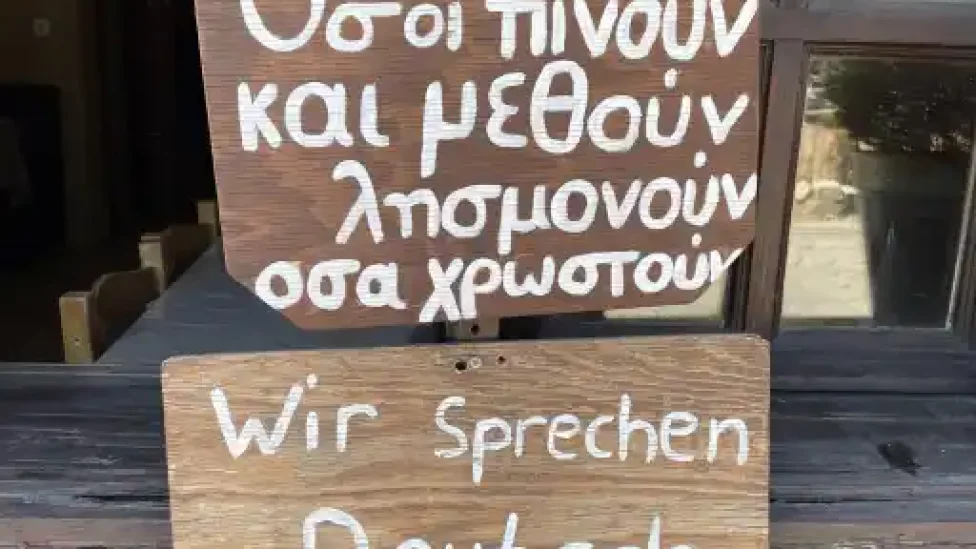 Όσοι πίνουν
και μεθούν
λησμονούν
οσα χρωστούν
Wir Sprechen
Deutsch